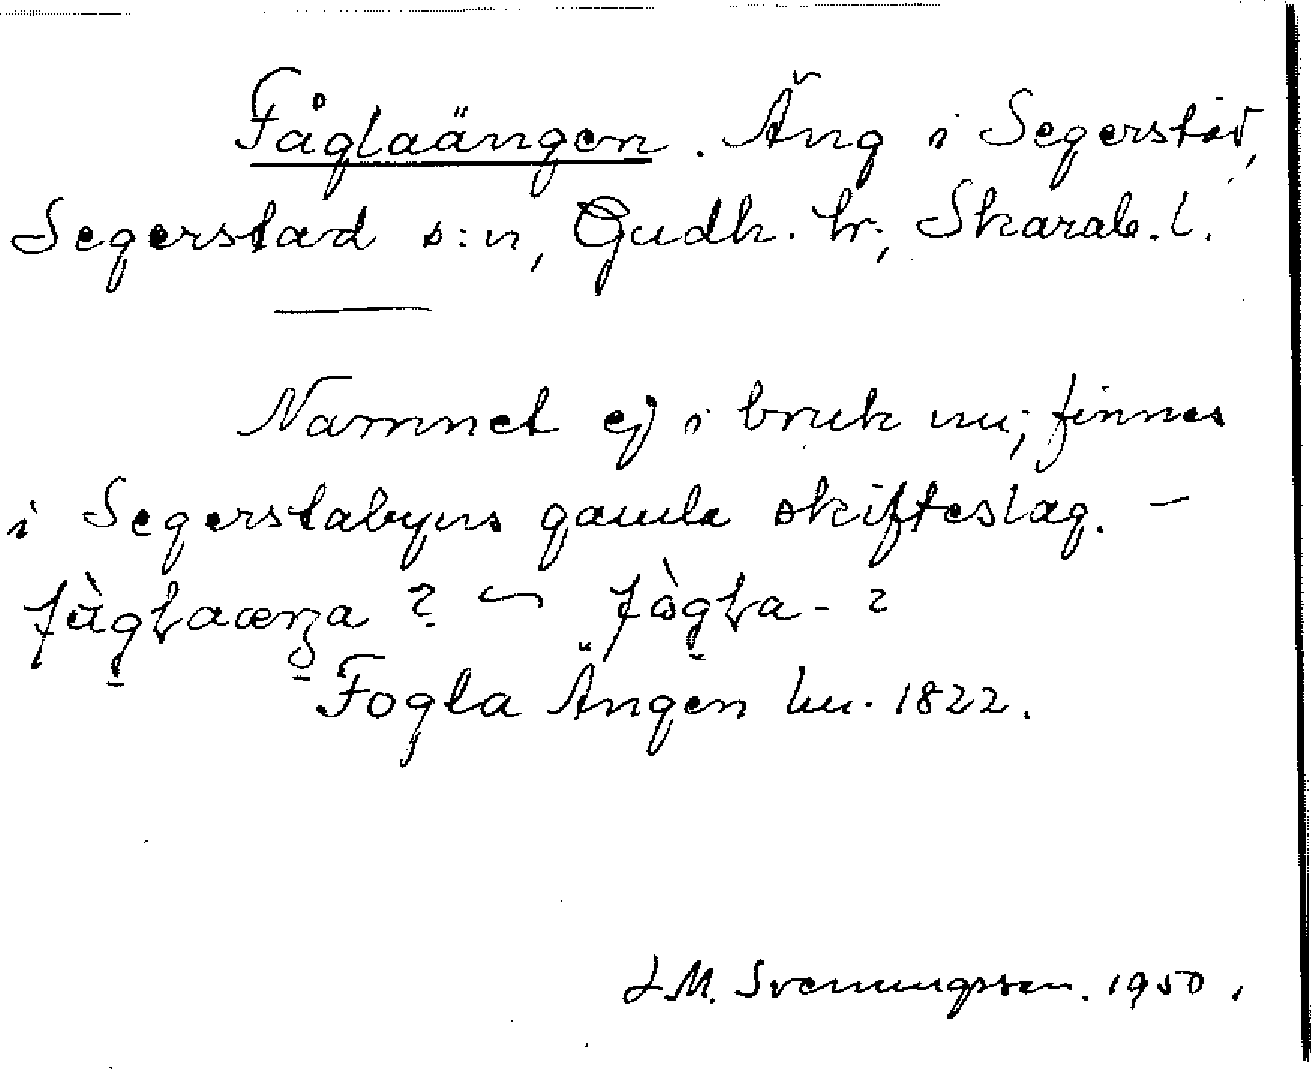 Fåglaängen. Äng i Segerstad,
Segerstad s:n, Gudh. hr., Skarab. l.
Namnet ej i bruk nu; finnes
i Segerstabyns gamla skifteslag. –
fàglaæŋa ? ~ fògla- ?
Fogla Ängen hu. 1822.
J. M. Svenungsson. 1950.